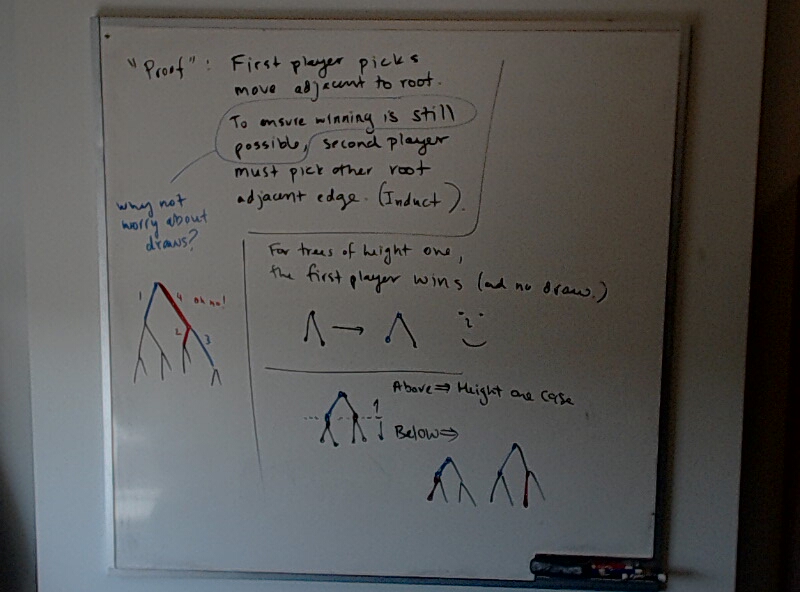 "Proof": First player picks
move adjacent to root.
To ensure winning is still
possible, second player
must pick other root
adjacent edge. (Induct).
why not
worry about
draws?
1
4 oh no!
2
3
For trees of height one,
the first player wins (and no draw.)
Above ⇒ Height one case
1
Below ⇒